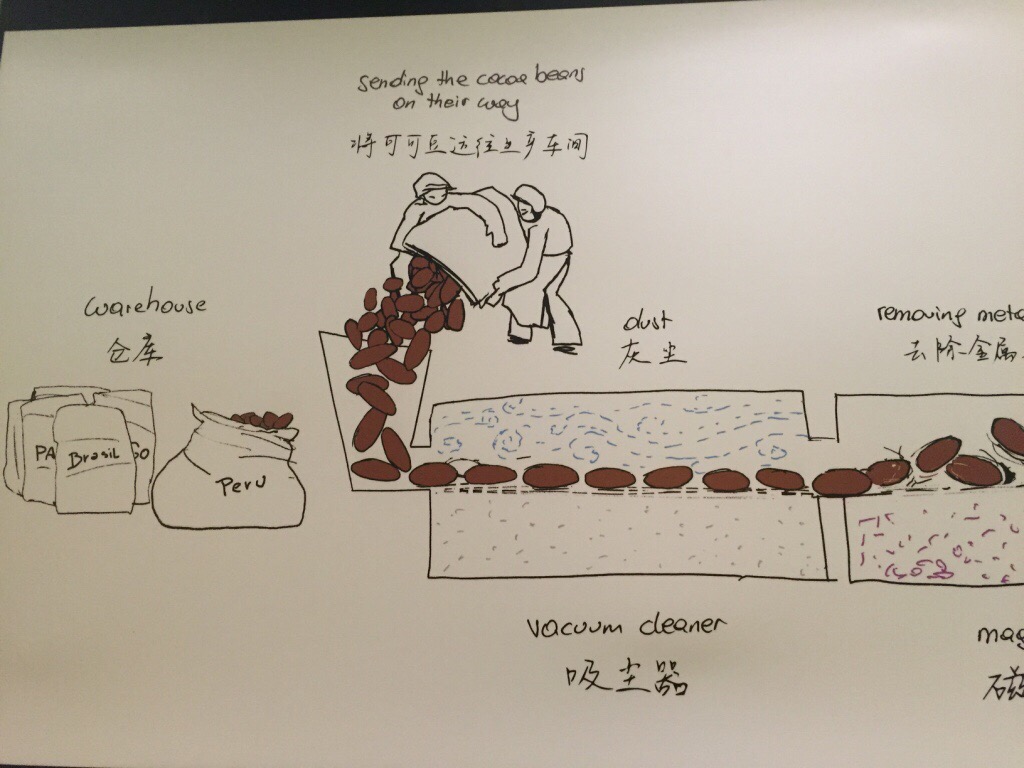 sending the cocoa beans
on their way
将可可豆运往生产车间
warehouse
仓库
dust
灰尘
removing meta
去除金属
PA
Brasil
GO
Peru
vacuum cleaner
吸尘器
mag
磁